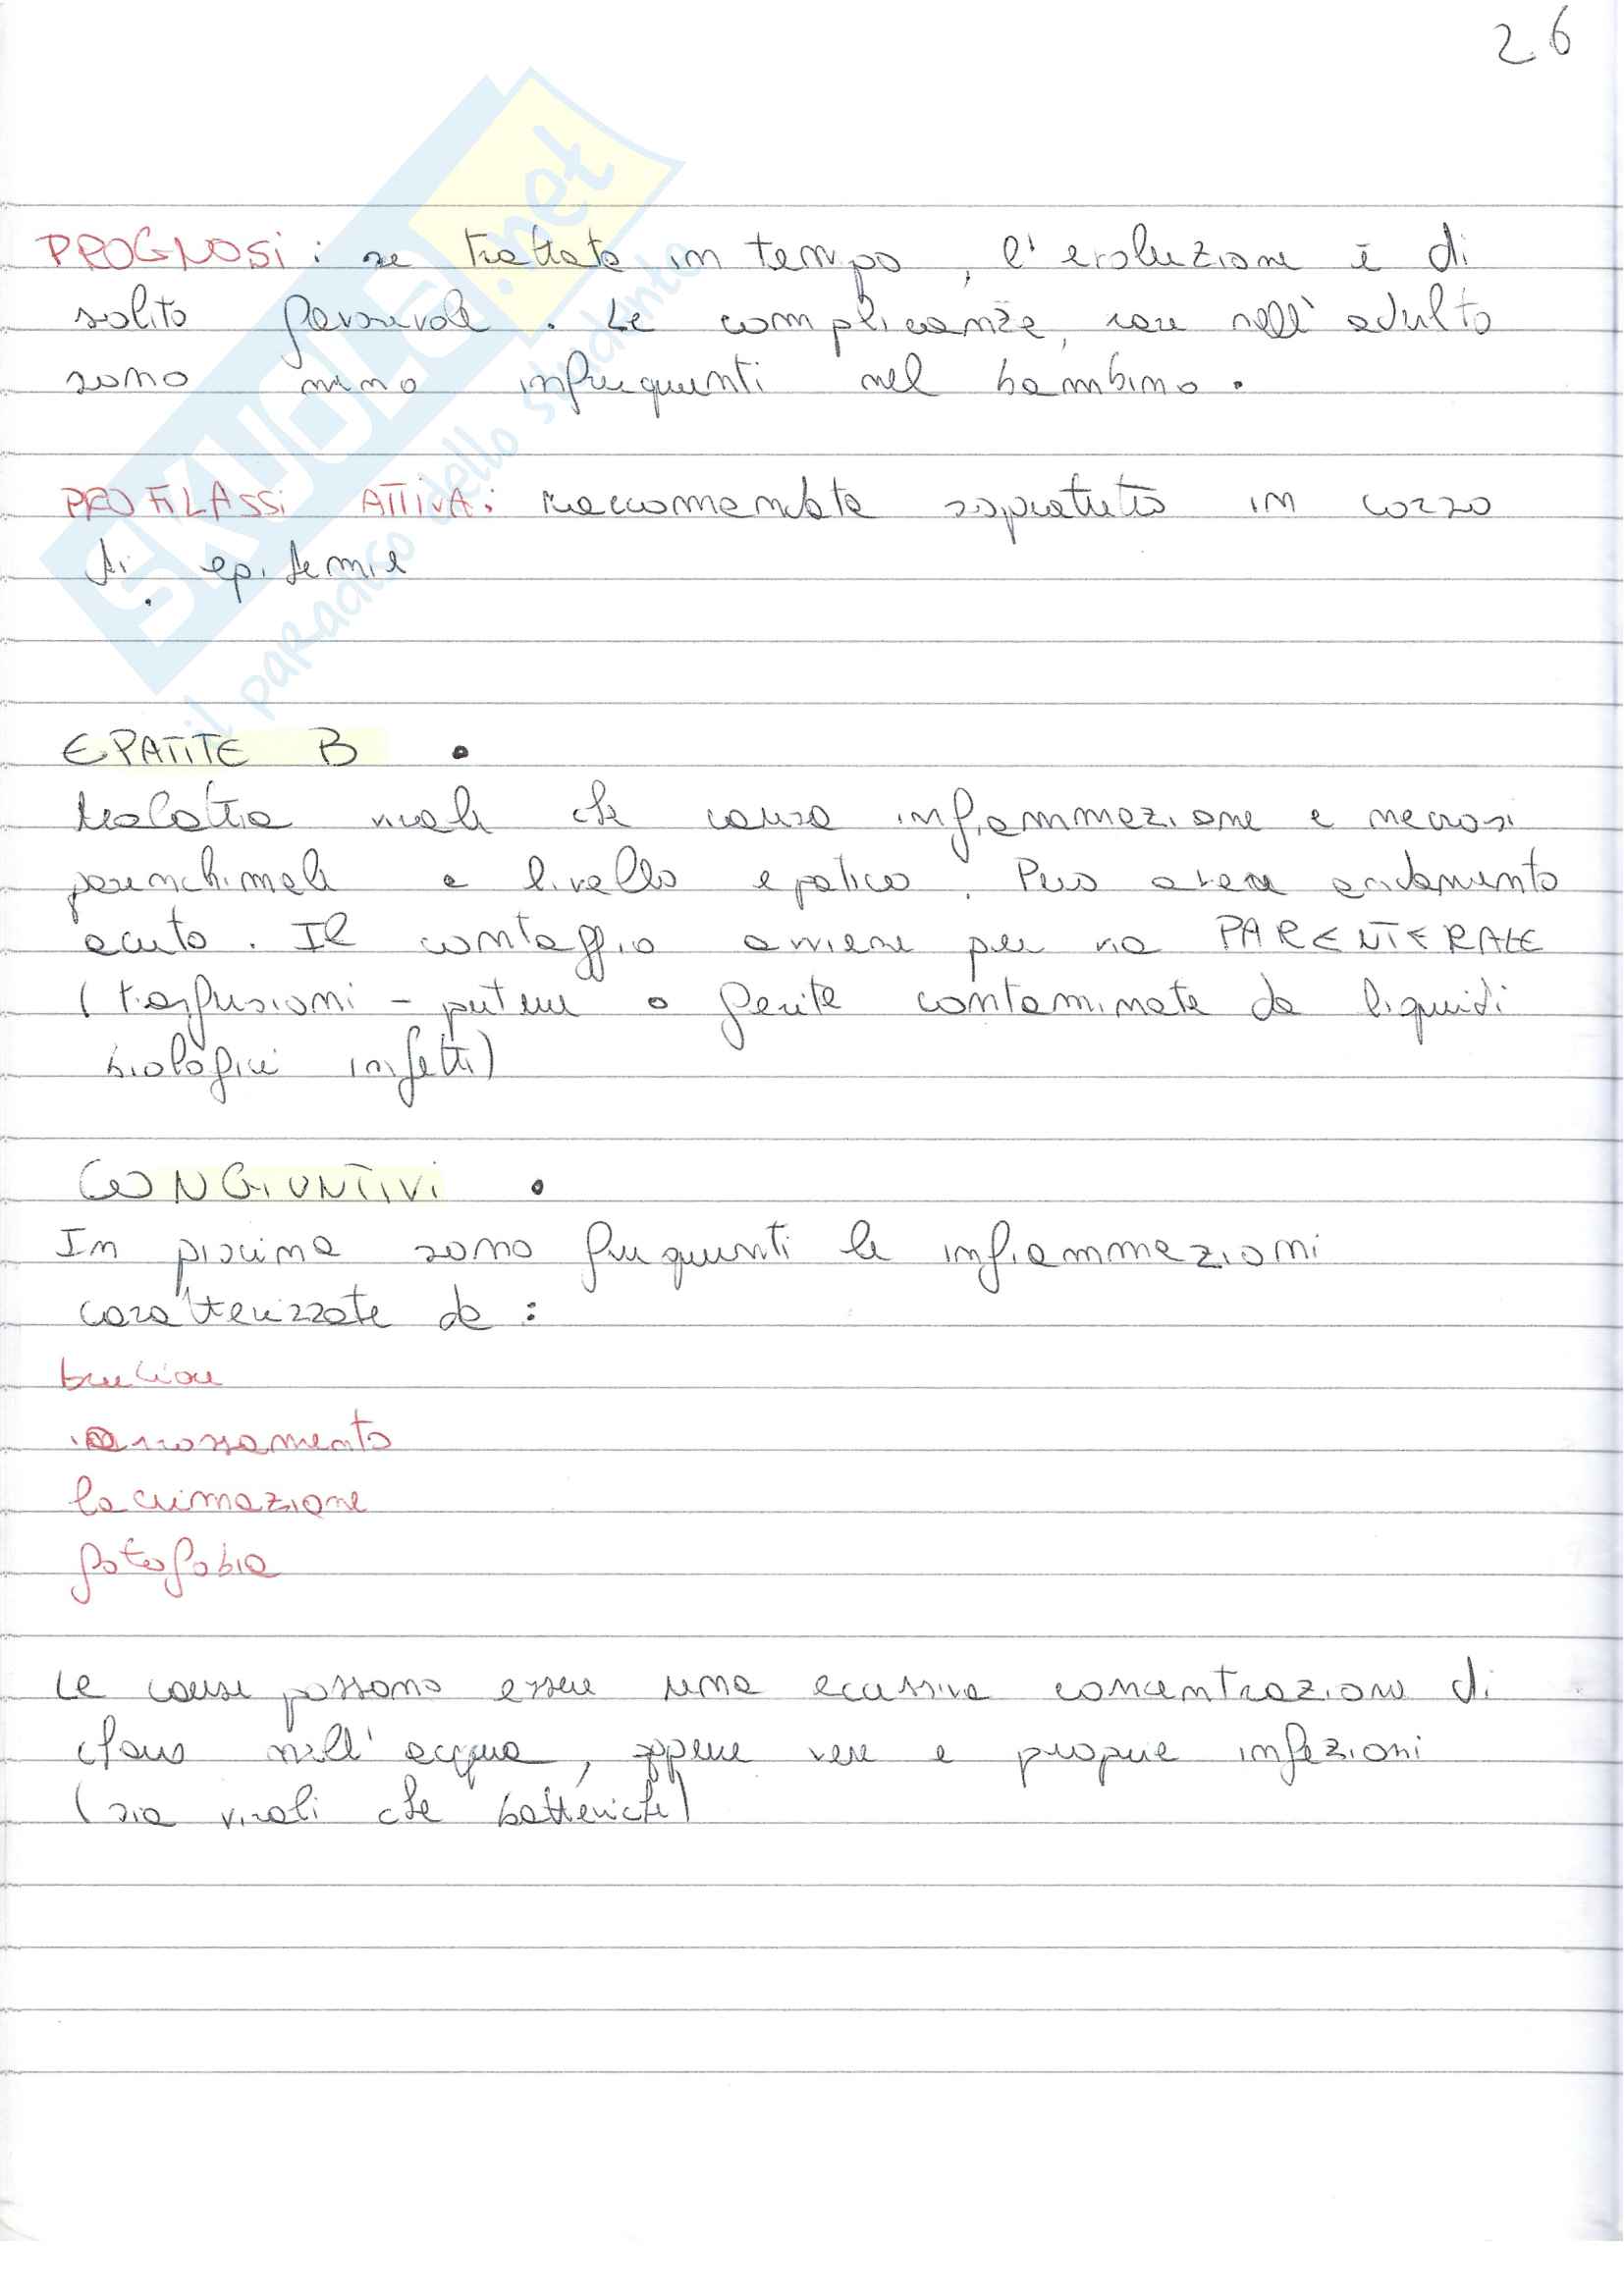 26
PROGNOSI : se trattata in tempo, l'evoluzione è di
solito favorevole. Le complicanze, rare nell'adulto
sono meno infrequenti nel bambino.
PROFILASSI ATTIVA: raccomandata sopratutto in corso
di epidemie
EPATITE B •
Malattia virale che causa infiammazione e necrosi
parenchimale a livello epatico. Può avere andamento
acuto. Il contaggio avviene per via PARENTERALE
(trasfusioni - punture o ferite contaminate da liquidi
biologici infetti)
CONGIUNTIVI •
In piscina sono frequenti le infiammazioni
caratterizzate da :
bruciore
arrossamento
lacrimazione
fotofobia
Le cause possono essere una eccessiva concentrazione di
cloro nell'acqua, oppure vere e proprie infezioni
(sia virali che batteriche)
SKUOLA.net
il paradiso dello studente